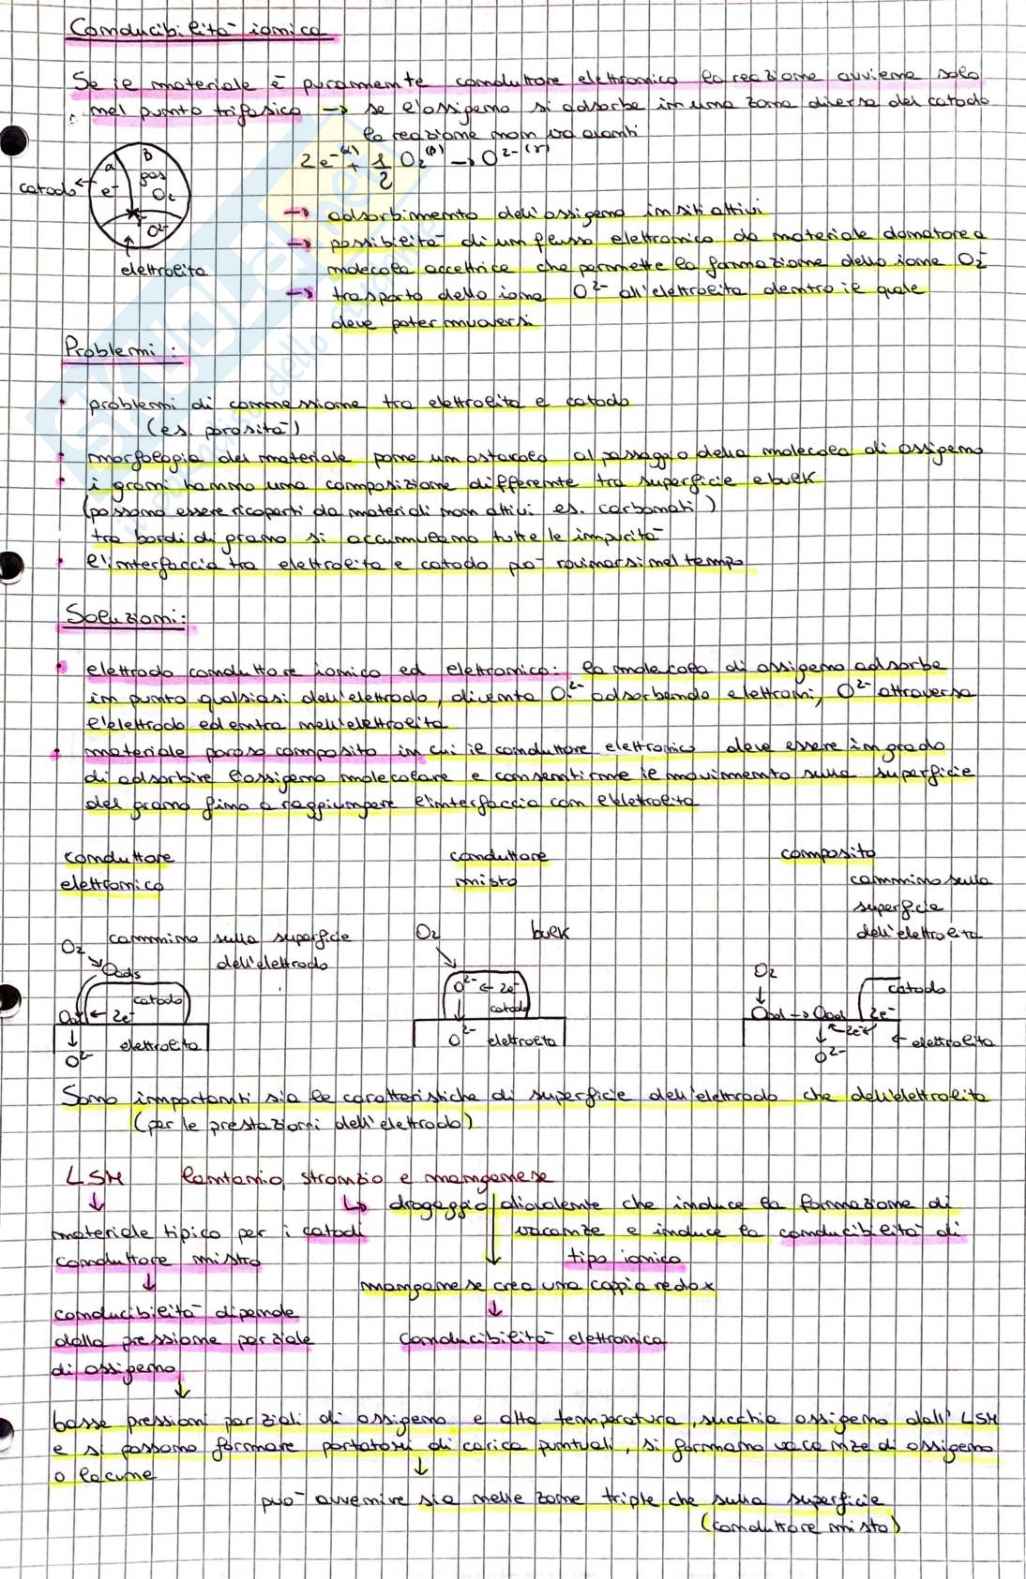 Conducibilità ionica
Se il materiale è puramente conduttore elettronico la reazione avviene solo
nel punto trifasico → se l'ossigeno si adsorbe in una zona diversa del catodo
la reazione non va avanti
2e⁻⁽ᵅ⁾ + 1/2 O₂⁽ᵝ⁾ → O²⁻⁽ᵞ⁾
a
e⁻
b
gas
O₂
O²⁻
catodo
elettrolita
→ adsorbimento dell'ossigeno in siti attivi
→ possibilità di un flusso elettronico da materiale donatore a
molecola accettrice che permette la formazione dello ione O₂⁻
→ trasporto dello ione O²⁻ all'elettrolita dentro il quale
deve poter muoversi
Problemi:
• problemi di connessione tra elettrolita e catodo
(es. porosità)
• morfologia del materiale pone un ostacolo al passaggio della molecola di ossigeno
• i grani hanno una composizione differente tra superficie e bulk
(possono essere ricoperti da materiali non attivi es. carbonati)
tra bordi di grano si accumulano tutte le impurità
• l'interfaccia tra elettrolita e catodo può rovinarsi nel tempo
Soluzioni:
• elettrodo conduttore ionico ed elettronico: la molecola di ossigeno adsorbe
in punto qualsiasi dell'elettrodo, diventa O²⁻ adsorbendo elettroni, O²⁻ attraversa
l'elettrodo ed entra nell'elettrolita
• materiale poroso composito in cui il conduttore elettronico deve essere in grado
di adsorbire l'ossigeno molecolare e consentirne il movimento sulla superficie
del grano fino a raggiungere l'interfaccia con l'elettrolita
conduttore
elettronico
conduttore
misto
composito
cammino sulla
superficie
dell'elettrolita
O₂
cammino sulla superficie
dell'elettrodo
Oads
catodo
← 2e⁻
elettrolita
O²⁻
O₂
bulk
O²⁻ ← 2e⁻
catodo
O²⁻ elettrolita
O₂
catodo
Oad → Oad 2e⁻
← 2e⁻
← elettrolita
O²⁻
Sono importanti sia le caratteristiche di superficie dell'elettrodo che dell'elettrolita
(per le prestazioni dell'elettrodo)
LSM lantanio, stronzio e manganese
↓ ↳ drogaggio aliovalente che induce la formazione di
materiale tipico per i catodi vacanze e induce la conducibilità di
conduttore misto tipo ionico
↓ manganese crea una coppia redox
conducibilità dipende ↓
dalla pressione parziale conducibilità elettronica
di ossigeno
↓
basse pressioni parziali di ossigeno e alta temperatura, succhia ossigeno dall'LSM
e si possono formare portatori di carica puntuali, si formano vacanze di ossigeno
o lacune ↓
può avvenire sia nelle zone triple che sulla superficie
(conduttore misto)